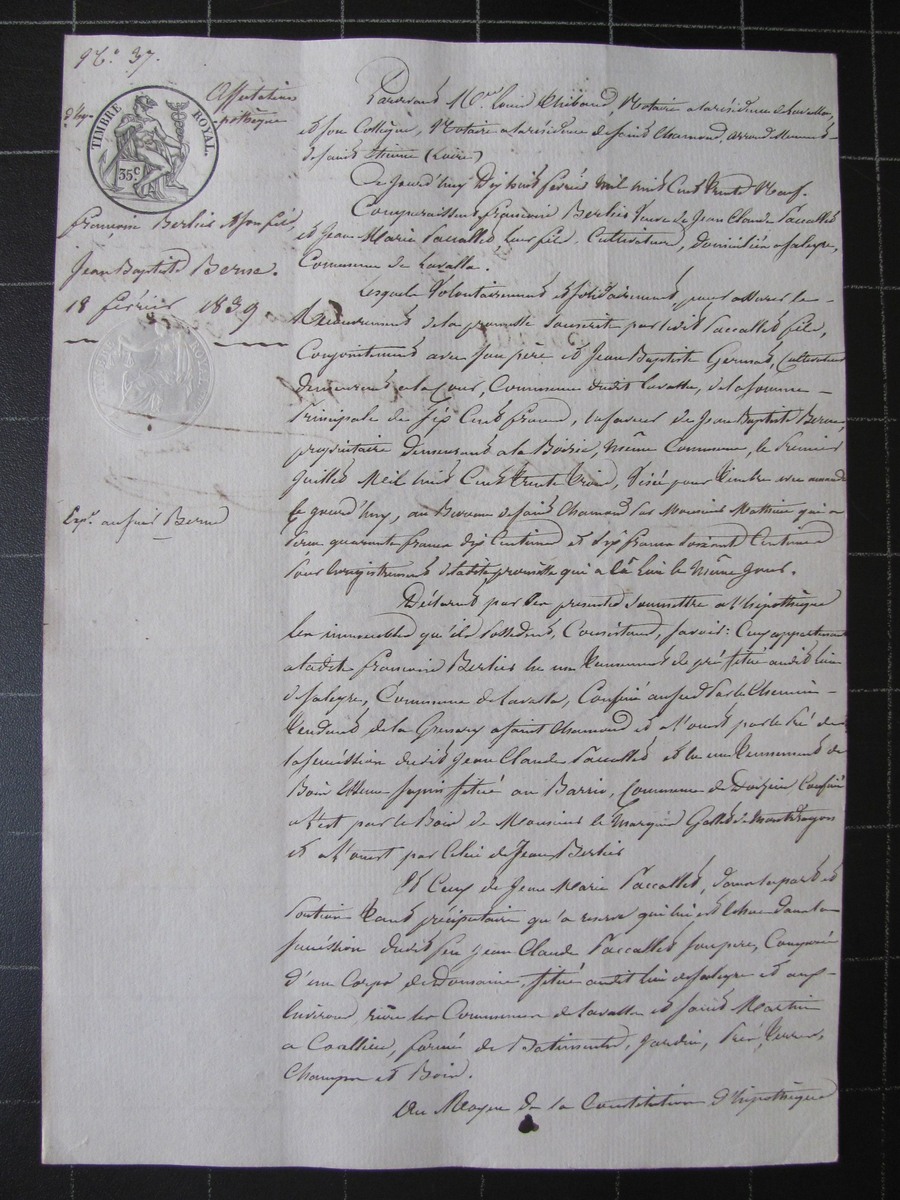 N.° 37.
Affectation
d'hypothèque
TIMBRE ROYAL.
35 c
françoise Berlier & son fils
Jean Baptiste Berne.
18 février 1839
Exp. audit Berne
Pardevant M.tre Louis Thibaud, Notaire à la résidence de Lavalla,
et son Collègue, Notaire à la résidence de Saint Chamond, arrondissement
de Saint Etienne (Loire)
Ce jourd'huy Dix huit février Mil huit Cent trente Neuf.
Comparaissent françoise Berlier Veuve de Jean Claude Paccallet
et Jean Marie Paccallet leur fils, Cultivateurs, domiciliés à
Commune de Lavalla.
Lesquels Volontairement et solidairement, pour assurer le
Recouvrement de la promesse souscrite par ledit Paccallet fils,
Conjointement avec son père et Jean Baptiste Germat, Cultivateur
demeurant à la Cour, Commune dudit Lavalla, de la somme
Principale de Six Cent francs, en faveur de Jean Baptiste Berne,
propriétaire demeurant à la même Commune, le Premier
Juillet Mil huit Cent Trente Trois, Visée pour timbre avec amende
Ce jourd'huy, au Bureau de Saint Chamond par Monsieur Mathieu qui a
Perçu quarante francs dix Centimes et Six francs soixante Centimes
Pour enregistrement de ladite promesse qui a eu lieu le Même Jour.
Déclarent par ces présentes soumettre à l'hipothèque
les immeubles qu'ils Possèdent, Consistant, savoir: Ceux appartenant
à ladite françoise Berlier en un tennement de pré situé audit lieu
Commune de Lavalla, Confiné au sud par le Chemin
tendant de la à Saint Chamond et à l'ouest par le Pré de
la succession dudit Jean Claude Paccallet et en un tennement de
Bois Essence sapin situé au Commune de Doizieu Confiné
à l'est par le Bois de Monsieur le Marquis Gallet de Mondragon
et à l'ouest par Celui de Jean Berlier
Et Ceux de Jean Marie Paccallet, dans la part et
Portion tant précipuitaire qu'à reserve qui lui est échue dans la
succession dudit feu Jean Claude Paccallet son père, Composée
d'un Corps de Domaine, situé audit lieu et aux
Environs, rière les Communes de Lavalla et Saint Martin
à Coallieu, formé de Batiments, Jardin, Prés, Terres,
Champs et Bois.
Au Moyen de la Constitution d'hipothèque